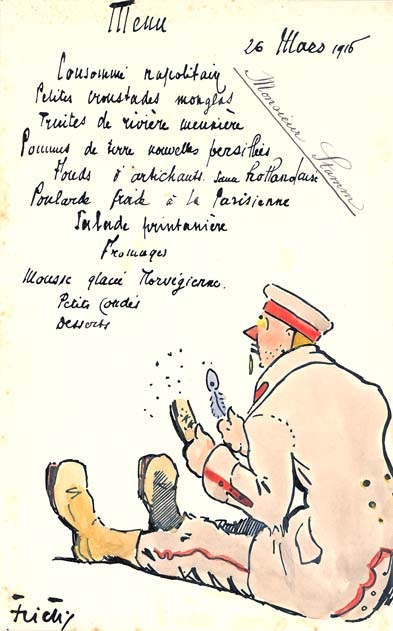 Menu
26 Mars 1916
Monsieur Stamm
Consommé napolitain
Petites croustades monglas
Truites de rivière meunière
Pommes de terre nouvelles persillées
Fonds d'artichauts sauce hollandaise
Poularde froide à la Parisienne
Salade printanière
Fromages
Mousse glacée Norvégienne.
Petits Condés
Desserts